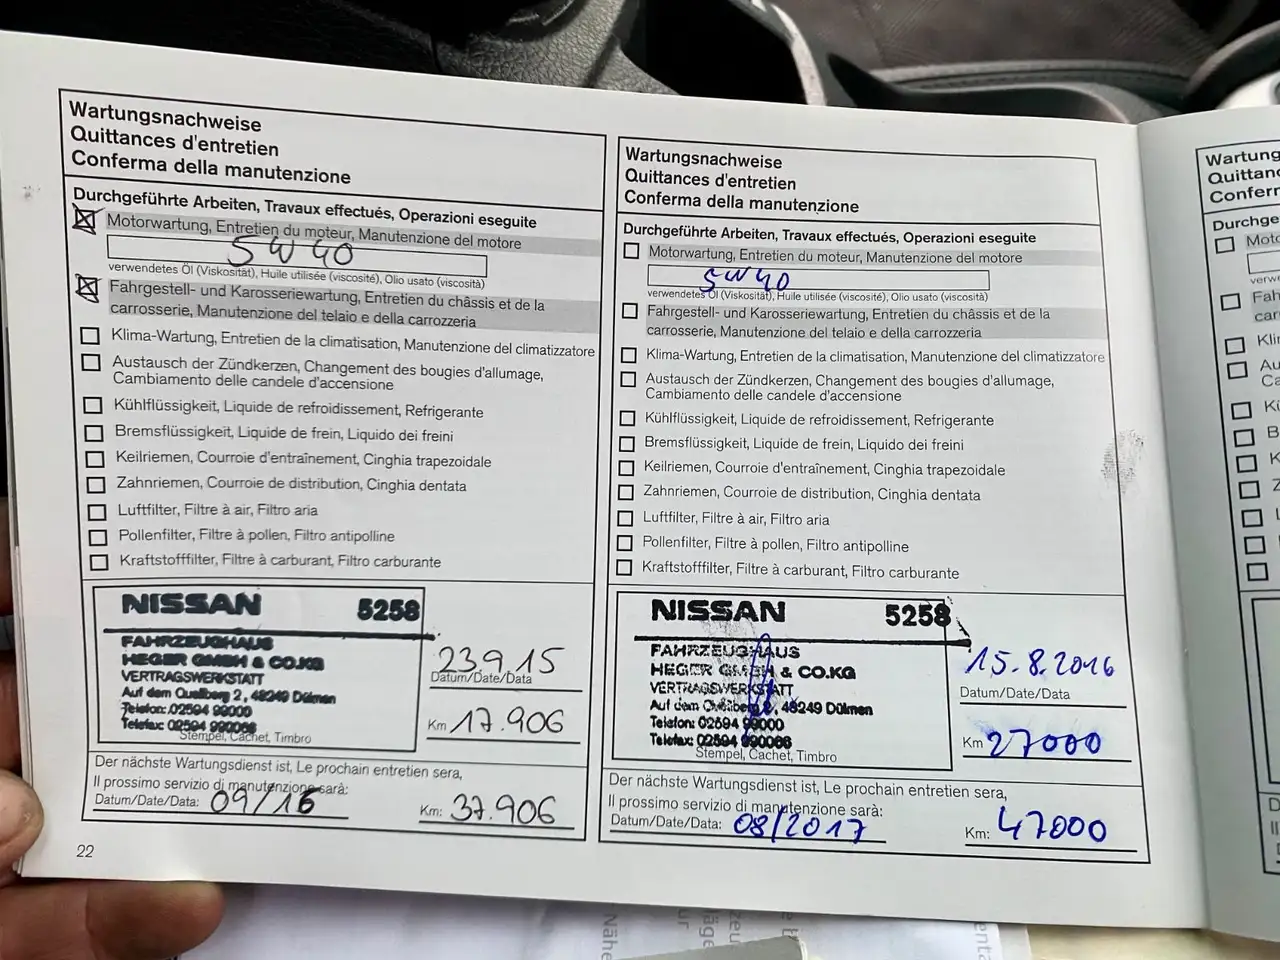 Wartungsnachweise
Quittances d'entretien
Conferma della manutenzione
Durchgeführte Arbeiten, Travaux effectués, Operazioni eseguite
Motorwartung, Entretien du moteur, Manutenzione del motore
5W40
verwendetes Öl (Viskosität), Huile utilisée (viscosité), Olio usato (viscosità)
Fahrgestell- und Karosseriewartung, Entretien du châssis et de la
carrosserie, Manutenzione del telaio e della carrozzeria
Klima-Wartung, Entretien de la climatisation, Manutenzione del climatizzatore
Austausch der Zündkerzen, Changement des bougies d'allumage,
Cambiamento delle candele d'accensione
Kühlflüssigkeit, Liquide de refroidissement, Refrigerante
Bremsflüssigkeit, Liquide de frein, Liquido dei freini
Keilriemen, Courroie d'entraînement, Cinghia trapezoidale
Zahnriemen, Courroie de distribution, Cinghia dentata
Luftfilter, Filtre à air, Filtro aria
Pollenfilter, Filtre à pollen, Filtro antipolline
Kraftstofffilter, Filtre à carburant, Filtro carburante
NISSAN 5258
FAHRZEUGHAUS
HEGER GMBH & CO.KG
VERTRAGSWERKSTATT
Auf dem Quellberg 2, 48249 Dülmen
Telefon: 02594 99000
Telefax: 02594 990066
Stempel, Cachet, Timbro
23.9.15
Datum/Date/Data
Km 17.906
Der nächste Wartungsdienst ist, Le prochain entretien sera,
Il prossimo servizio di manutenzione sarà:
Datum/Date/Data: 09/16 Km: 37.906
22
Wartungsnachweise
Quittances d'entretien
Conferma della manutenzione
Durchgeführte Arbeiten, Travaux effectués, Operazioni eseguite
Motorwartung, Entretien du moteur, Manutenzione del motore
5W40
verwendetes Öl (Viskosität), Huile utilisée (viscosité), Olio usato (viscosità)
Fahrgestell- und Karosseriewartung, Entretien du châssis et de la
carrosserie, Manutenzione del telaio e della carrozzeria
Klima-Wartung, Entretien de la climatisation, Manutenzione del climatizzatore
Austausch der Zündkerzen, Changement des bougies d'allumage,
Cambiamento delle candele d'accensione
Kühlflüssigkeit, Liquide de refroidissement, Refrigerante
Bremsflüssigkeit, Liquide de frein, Liquido dei freini
Keilriemen, Courroie d'entraînement, Cinghia trapezoidale
Zahnriemen, Courroie de distribution, Cinghia dentata
Luftfilter, Filtre à air, Filtro aria
Pollenfilter, Filtre à pollen, Filtro antipolline
Kraftstofffilter, Filtre à carburant, Filtro carburante
NISSAN 5258
FAHRZEUGHAUS
HEGER GMBH & CO.KG
VERTRAGSWERKSTATT
Auf dem Quellberg 2, 48249 Dülmen
Telefon: 02594 99000
Telefax: 02594 990066
Stempel, Cachet, Timbro
15.8.2016
Datum/Date/Data
Km 27000
Der nächste Wartungsdienst ist, Le prochain entretien sera,
Il prossimo servizio di manutenzione sarà:
Datum/Date/Data: 08/2017 Km: 47000